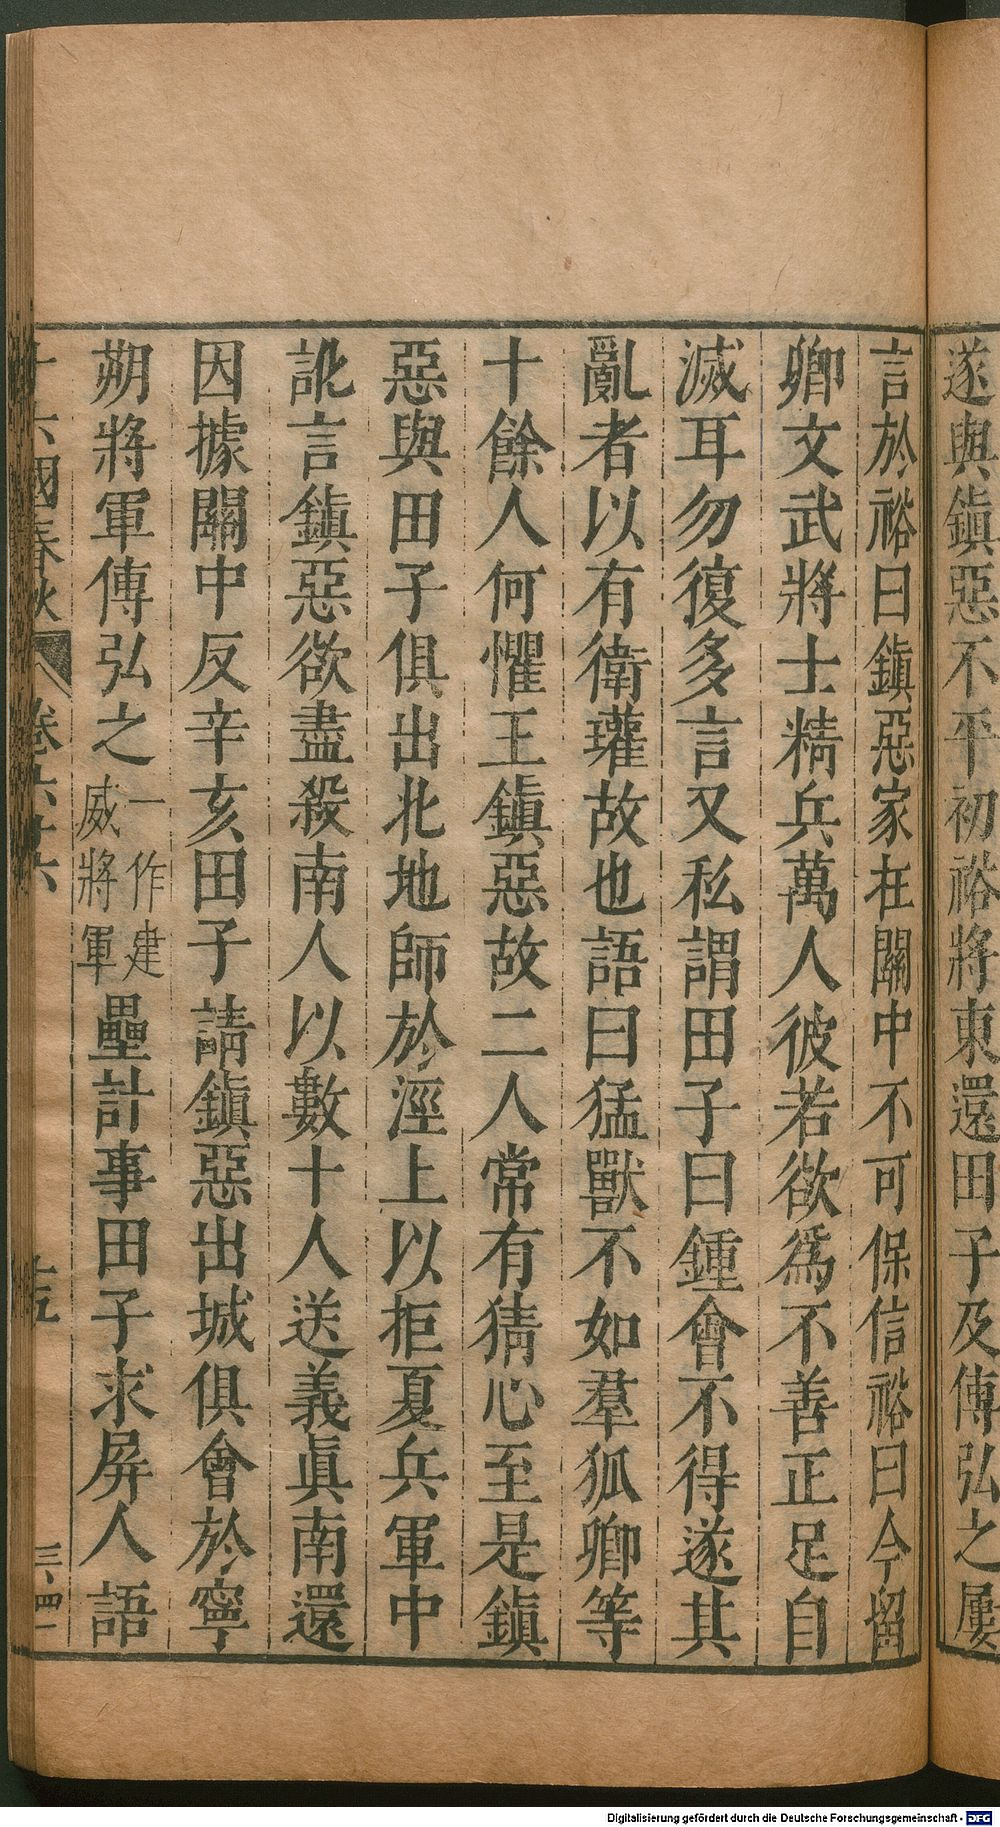 遂與鎮惡不平初裕將東還田子及傅弘之屢
言於裕曰鎮惡家在關中不可保信裕曰今留
卿文武將士精兵萬人彼若欲爲不善正足自
滅耳勿復多言又私謂田子曰鍾會不得遂其
亂者以有衛瓘故也語曰猛獸不如羣狐卿等
十餘人何懼王鎮惡故二人常有猜心至是鎮
惡與田子俱出北地師於涇上以拒夏兵軍中
訛言鎮惡欲盡殺南人以數十人送義眞南還
因據關中反辛亥田子請鎮惡出城俱會於寧
朔將軍傅弘之一作建威將軍壘計事田子求屏人語
十六國春秋 卷六十六 十五 三四一
Digitalisierung gefördert durch die Deutsche Forschungsgemeinschaft - DFG